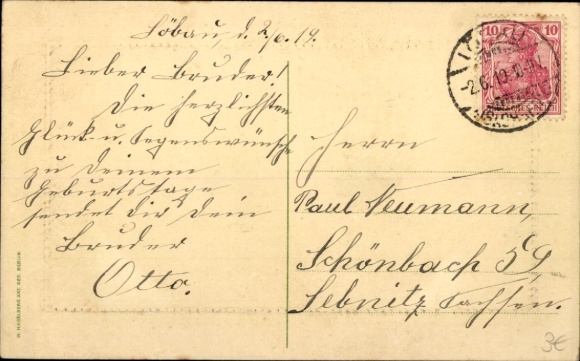 Löbau, d. 2/6. 19.
Lieber Bruder!
Die herzlichsten
Glück- u. Segenswünsche
zu Deinem
Geburtstage
sendet dir Dein
Bruder
Otto.
Herrn
Paul Neumann,
Schönbach
Sebnitz Sachsen.
10 10
LÖBAU
3€